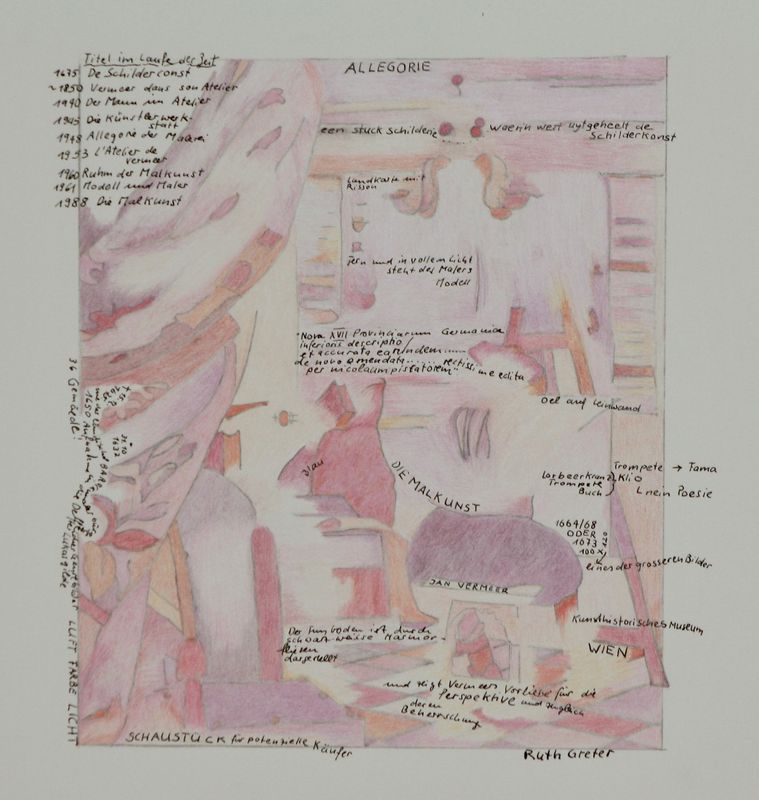 Titel im Laufe der Zeit
1675 De Schilderconst
~1850 Vermeer dans son Atelier
1940 Der Mann im Atelier
1945 Die Künstlerwerk-
statt
1948 Allegorie der Malerei
1953 L'Atelier de
Vermeer
1960 Ruhm der Malkunst
1961 Modell und Maler
1988 Die Malkunst
ALLEGORIE
een stuck schilderie
waerin wert uytgebeelt de
Schilderkonst
Landkarte mit
Rissen
Fern und in vollem Licht
steht des Malers
Modell
"Nova XVII Provinciarum Germaniae
inferioris descriptio /
et accurata earundem......
de novo emendata....... rectissime edita
per nicolaum piscatorem"
Oel auf Leinwand
blau
DIE MALKUNST
Lorbeerkranz
Trompete
Buch
Klio
Trompete → Fama
nein Poesie
1664/68
ODER
1673
100 x
eines der grösseren Bilder
JAN VERMEER
Kunsthistorisches Museum
WIEN
Der Fussboden ist durch
schwarz weisse Marmor-
fliesen
dargestellt
und zeigt Vermeers Vorliebe für die
Perspektive und zugleich
deren
Beherrschung
34 Gemälde!
31.10
1632
LUFT FARBE LICHT
SCHAUSTÜCK für potenzielle Käufer
Ruth Greter